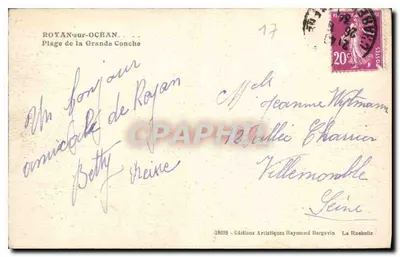 ROYAN-sur-OCEAN.
Plage de la Grande Conche
17
20c
POSTES
Un bonjour
amicale de Royan
Betty Reine
Mells
Jeanne
12 allée
Villemomble
Seine
CPARAMA
Editions Artistiques Raymond Bergevin La Rochelle